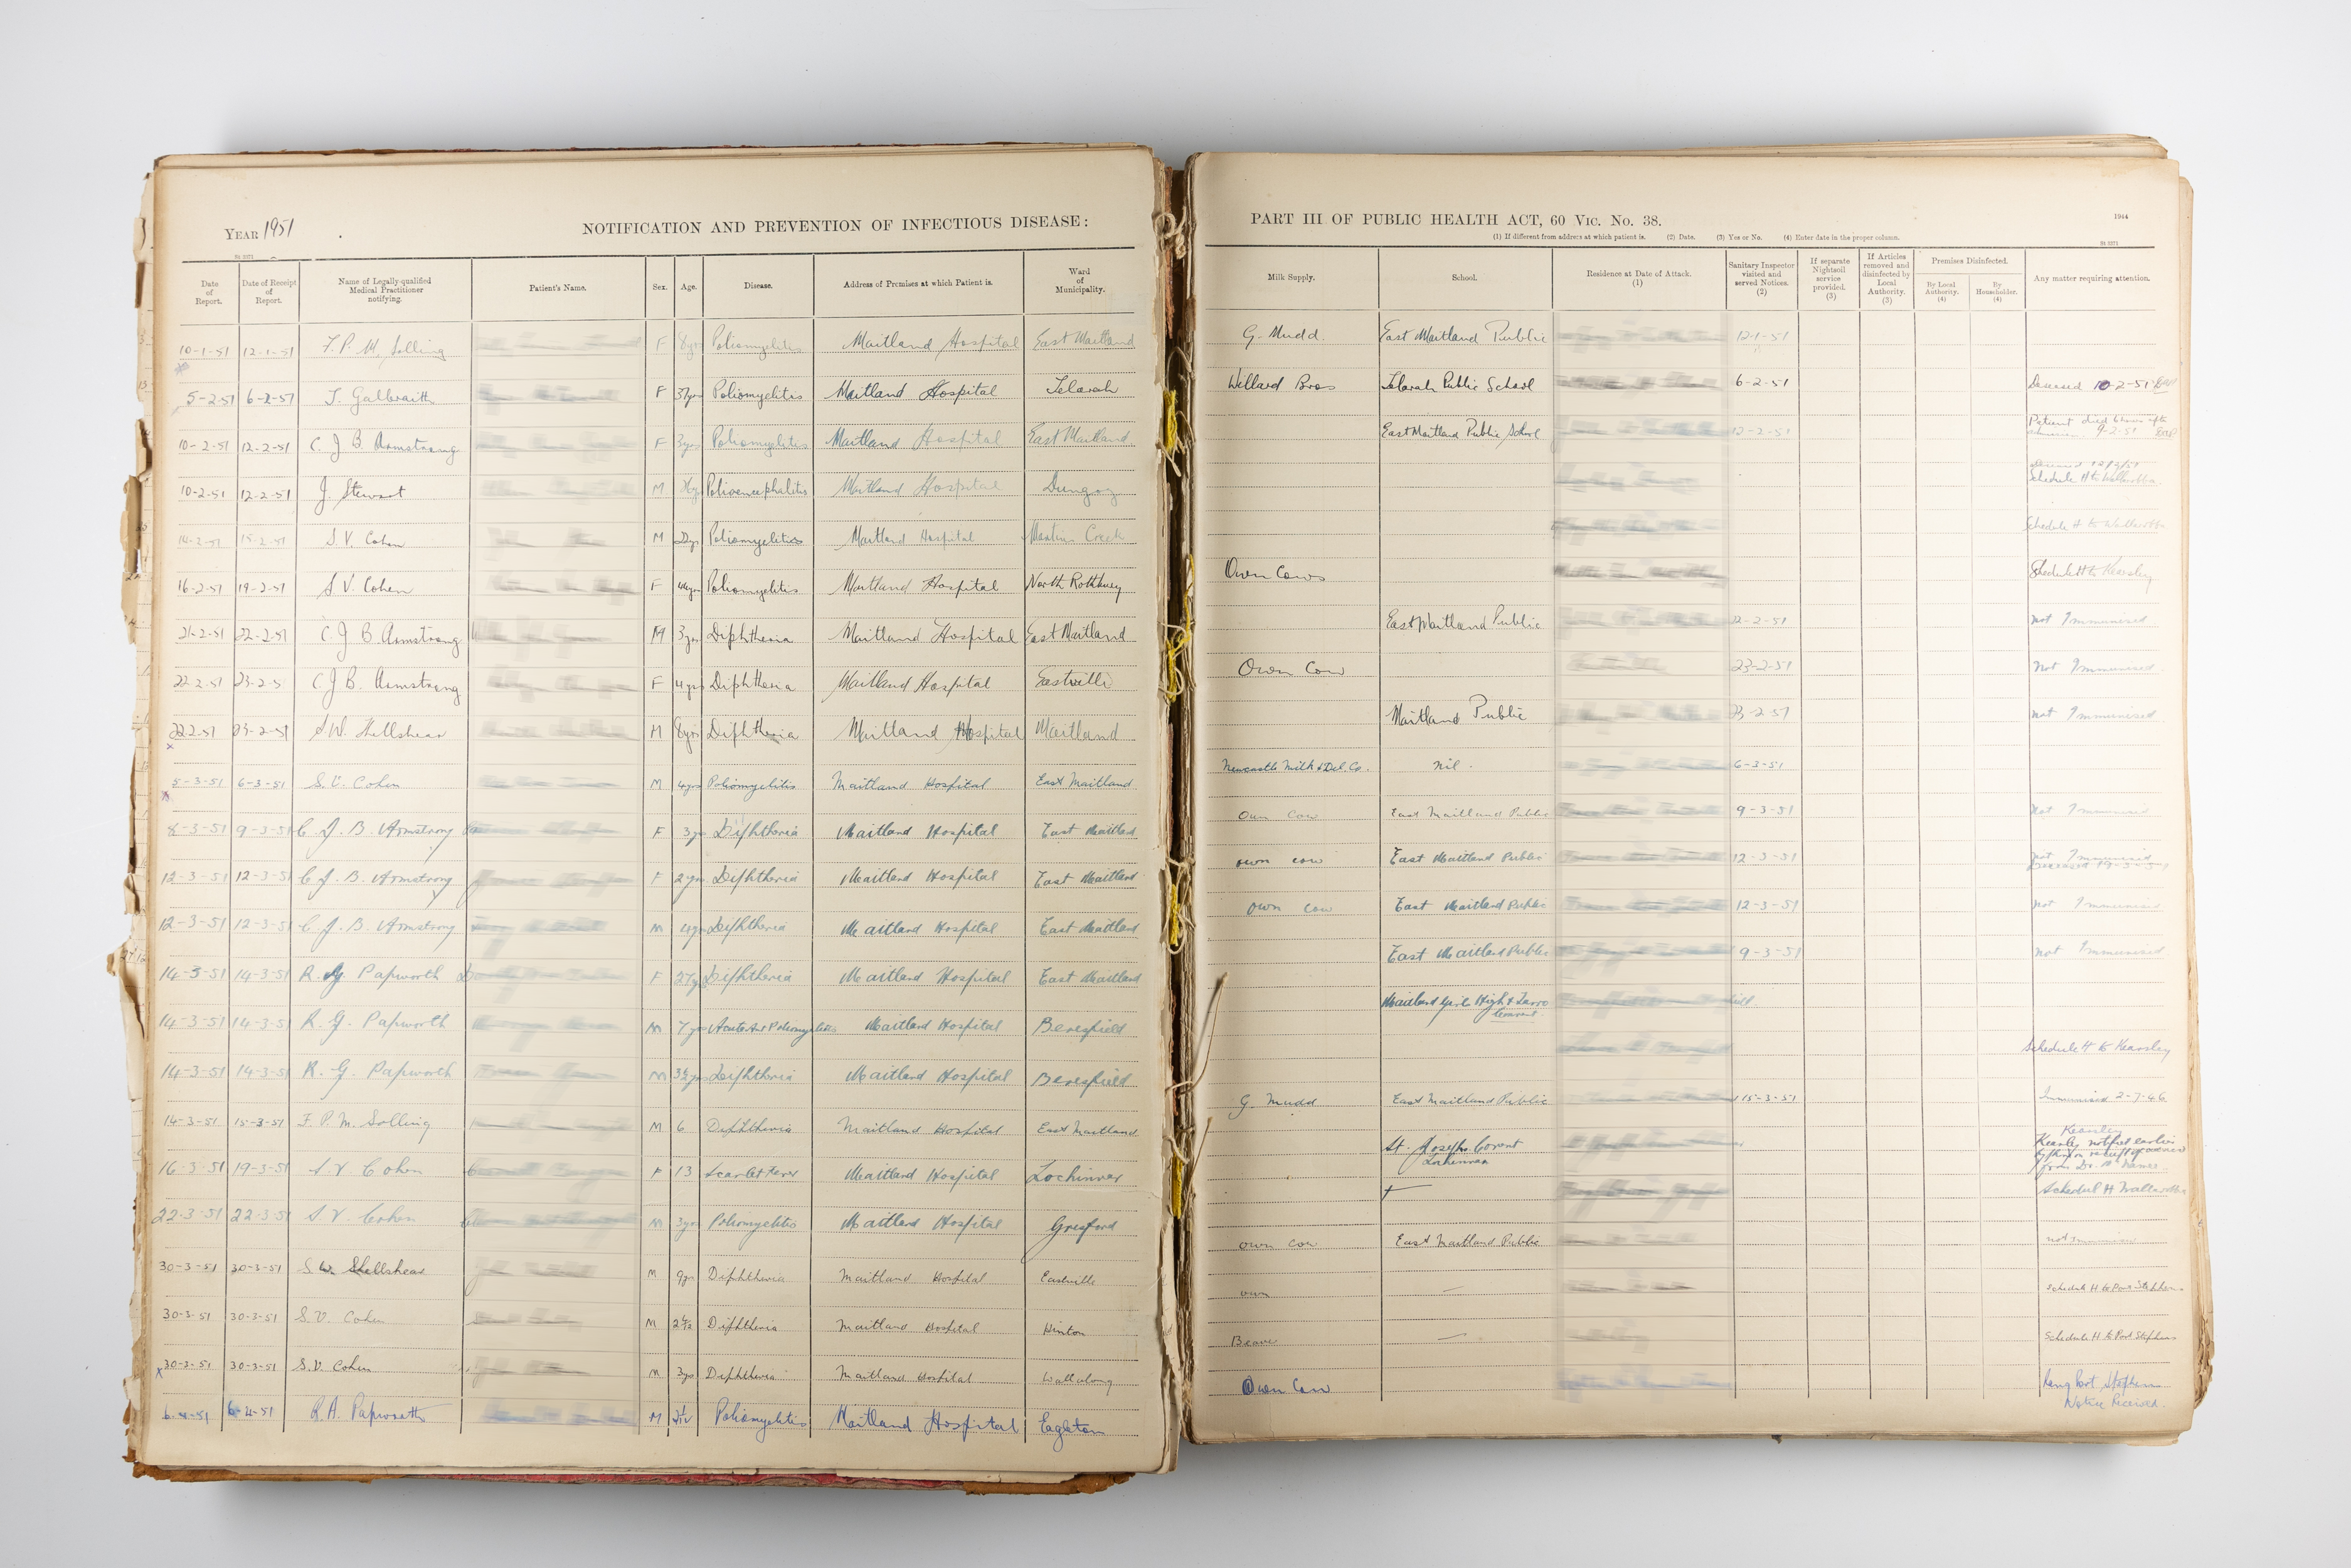 YEAR 1951
NOTIFICATION AND PREVENTION OF INFECTIOUS DISEASE:
Date of Report. Date of Receipt of Report. Name of Legally-qualified Medical Practitioner notifying. Patient's Name. Sex. Age. Disease. Address of Premises at which Patient is. Ward of Municipality.
10-1-51 12-1-51 F. P. M. Solling F 8yrs Poliomyelitis Maitland Hospital East Maitland
5-2-51 6-2-51 J. Galbraith F Poliomyelitis Maitland Hospital Telarah
10-2-51 12-2-51 C. J. B. Armstrong F 3yrs Poliomyelitis Maitland Hospital East Maitland
10-2-51 12-2-51 J. Stewart M Polioencephalitis Maitland Hospital Dungog
14-2-51 15-2-51 S. V. Cohen M Poliomyelitis Maitland Hospital Martins Creek
16-2-51 19-2-51 S. V. Cohen F Poliomyelitis Maitland Hospital North Rothbury
21-2-51 22-2-51 C. J. B. Armstrong M 3yrs Diphtheria Maitland Hospital East Maitland
22-2-51 23-2-51 C J B. Armstrong F 4yrs Diphtheria Maitland Hospital Eastville
22-2-51 23-2-51 S. W. Shellshear M 8yrs Diphtheria Maitland Hospital Maitland
5-3-51 6-3-51 S. V. Cohen M 4yrs Poliomyelitis Maitland Hospital East Maitland
8-3-51 9-3-51 C. J. B. Armstrong F 3yrs Diphtheria Maitland Hospital East Maitland
12-3-51 12-3-51 C. J. B. Armstrong F 2yrs Diphtheria Maitland Hospital East Maitland
12-3-51 12-3-51 C. J. B. Armstrong M 4yrs Diphtheria Maitland Hospital East Maitland
14-3-51 14-3-51 R. G. Papworth F 27yrs Diphtheria Maitland Hospital East Maitland
14-3-51 14-3-51 R. G. Papworth M 7yrs Acute Ant Poliomyelitis Maitland Hospital Beresfield
14-3-51 14-3-51 R. G. Papworth M 3½yrs Diphtheria Maitland Hospital Beresfield
14-3-51 15-3-51 F. P. M. Solling M 6 Diphtheria Maitland Hospital East Maitland
16-3-51 19-3-51 S. V. Cohen F 13 Scarlet Fever Maitland Hospital Lochinvar
22-3-51 22-3-51 S. V. Cohen M 3yrs Poliomyelitis Maitland Hospital Gresford
30-3-51 30-3-51 S. W. Shellshear M 9yrs Diphtheria Maitland Hospital Eastville
30-3-51 30-3-51 S. V. Cohen M Diphtheria Maitland Hospital Hinton
30-3-51 30-3-51 S. V. Cohen M 3yrs Diphtheria Maitland Hospital Wallalong
6-4-51 6-4-51 R. A. Papworth M Poliomyelitis Maitland Hospital Eagleton
PART III OF PUBLIC HEALTH ACT, 60 VIC. No. 38.
1944
(1) If different from address at which patient is. (2) Date. (3) Yes or No. (4) Enter date in the proper column.
Milk Supply. School. Residence at Date of Attack. (1) Sanitary Inspector visited and served Notices. (2) If separate Nightsoil service provided. (3) If Articles removed and disinfected by Local Authority. (3) Premises Disinfected. By Local Authority. (4) By Householder. (4) Any matter requiring attention.
G. Mudd. East Maitland Public 12-1-51
Willard Bros Telarah Public School 6-2-51 Deceased 10-2-51
East Maitland Public School 12-2-51 Patient died 6 hours after admission 9-2-51
Deceased 12/2/51
Schedule H to Wallarobba
Schedule H to Wallarobba
Own Cows Schedule H to Kearsley
East Maitland Public 22-2-51 not Immunised
Own Cow 23-2-51 Not Immunised
Maitland Public 23-2-51 not Immunised
Newcastle Milk & Del. Co. nil. 6-3-51
Own Cow East Maitland Public 9-3-51 Not Immunised
own cow East Maitland Public 12-3-51 not Immunised
Deceased
own cow East Maitland Public 12-3-51 not Immunised
East Maitland Public 9-3-51 not Immunised
Maitland Girls High &
Schedule H to Kearsley
G. Mudd East Maitland Public 15-3-51 Immunised 2-7-46
Kearsley
St. Josephs Convent Kearsley notified earlier
Lochinvar
from Dr.
Schedule H Wallarobba
own cow East Maitland Public not immunised
own — Schedule H to Port Stephens
Beaver — Schedule H to Port Stephens
Own Cow Port Stephens
Notice Received.